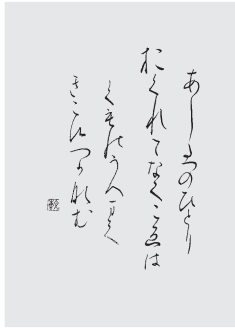 あしたつのひとり
おくれてなくこゑは
くものうへまて
きこえつかなむ